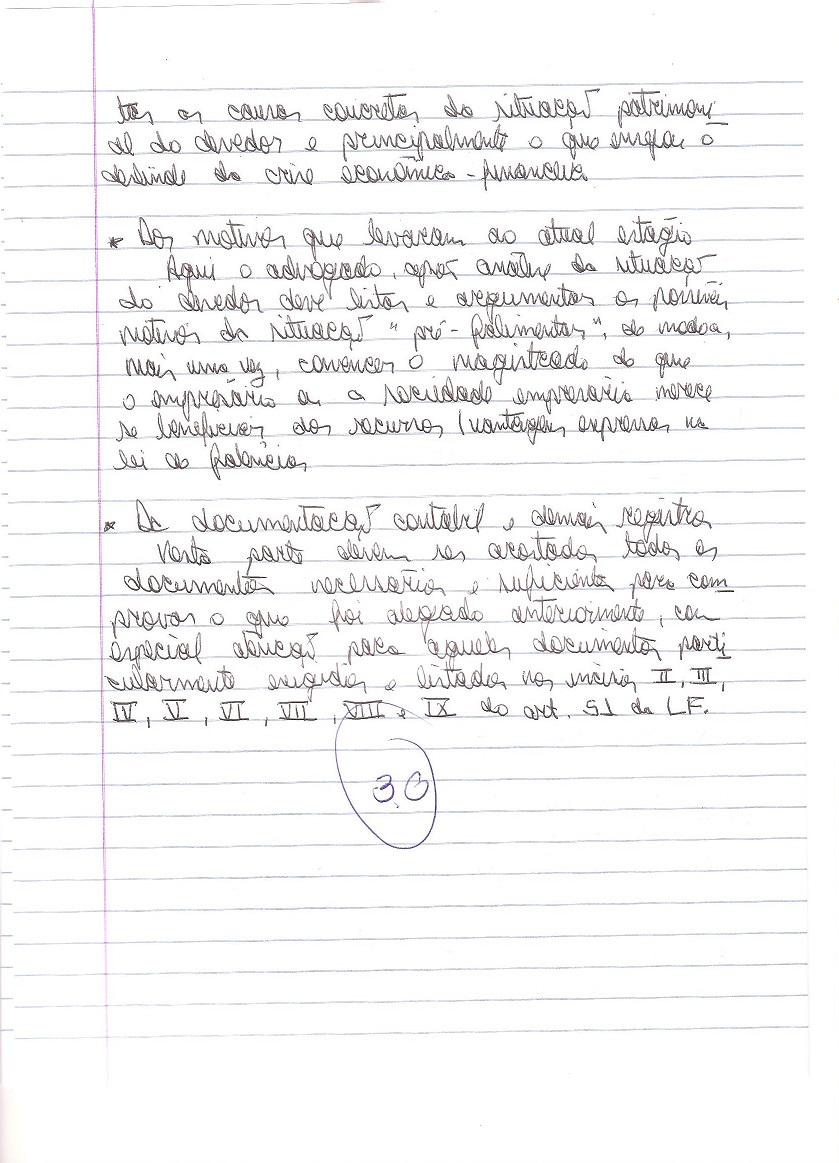 tas as causas concretas da situação patrimoni
al do devedor e principalmente o que ensejou o
deslinde da crise econômico-financeira.
* Dos motivos que levaram ao atual estágio
Aqui o advogado, após análise da situação
do devedor deve listar e argumentar os possíveis
motivos da situação "pré-falimentar", de modo a,
mais uma vez, convencer o magistrado de que
o empresário ou a sociedade empresária merece
se beneficiar dos recursos/vantagens expressos na
lei de falências
* Da documentação contábil e demais registros
Nesta parte devem ser acostados todos os
documentos necessários e suficientes para com
provar o que foi alegado anteriormente, com
especial atenção para aqueles documentos parti
cularmente exigidos e listados nos incisos II, III,
IV, V, VI, VII, VIII e IX do art. 51 da LF.
3.0